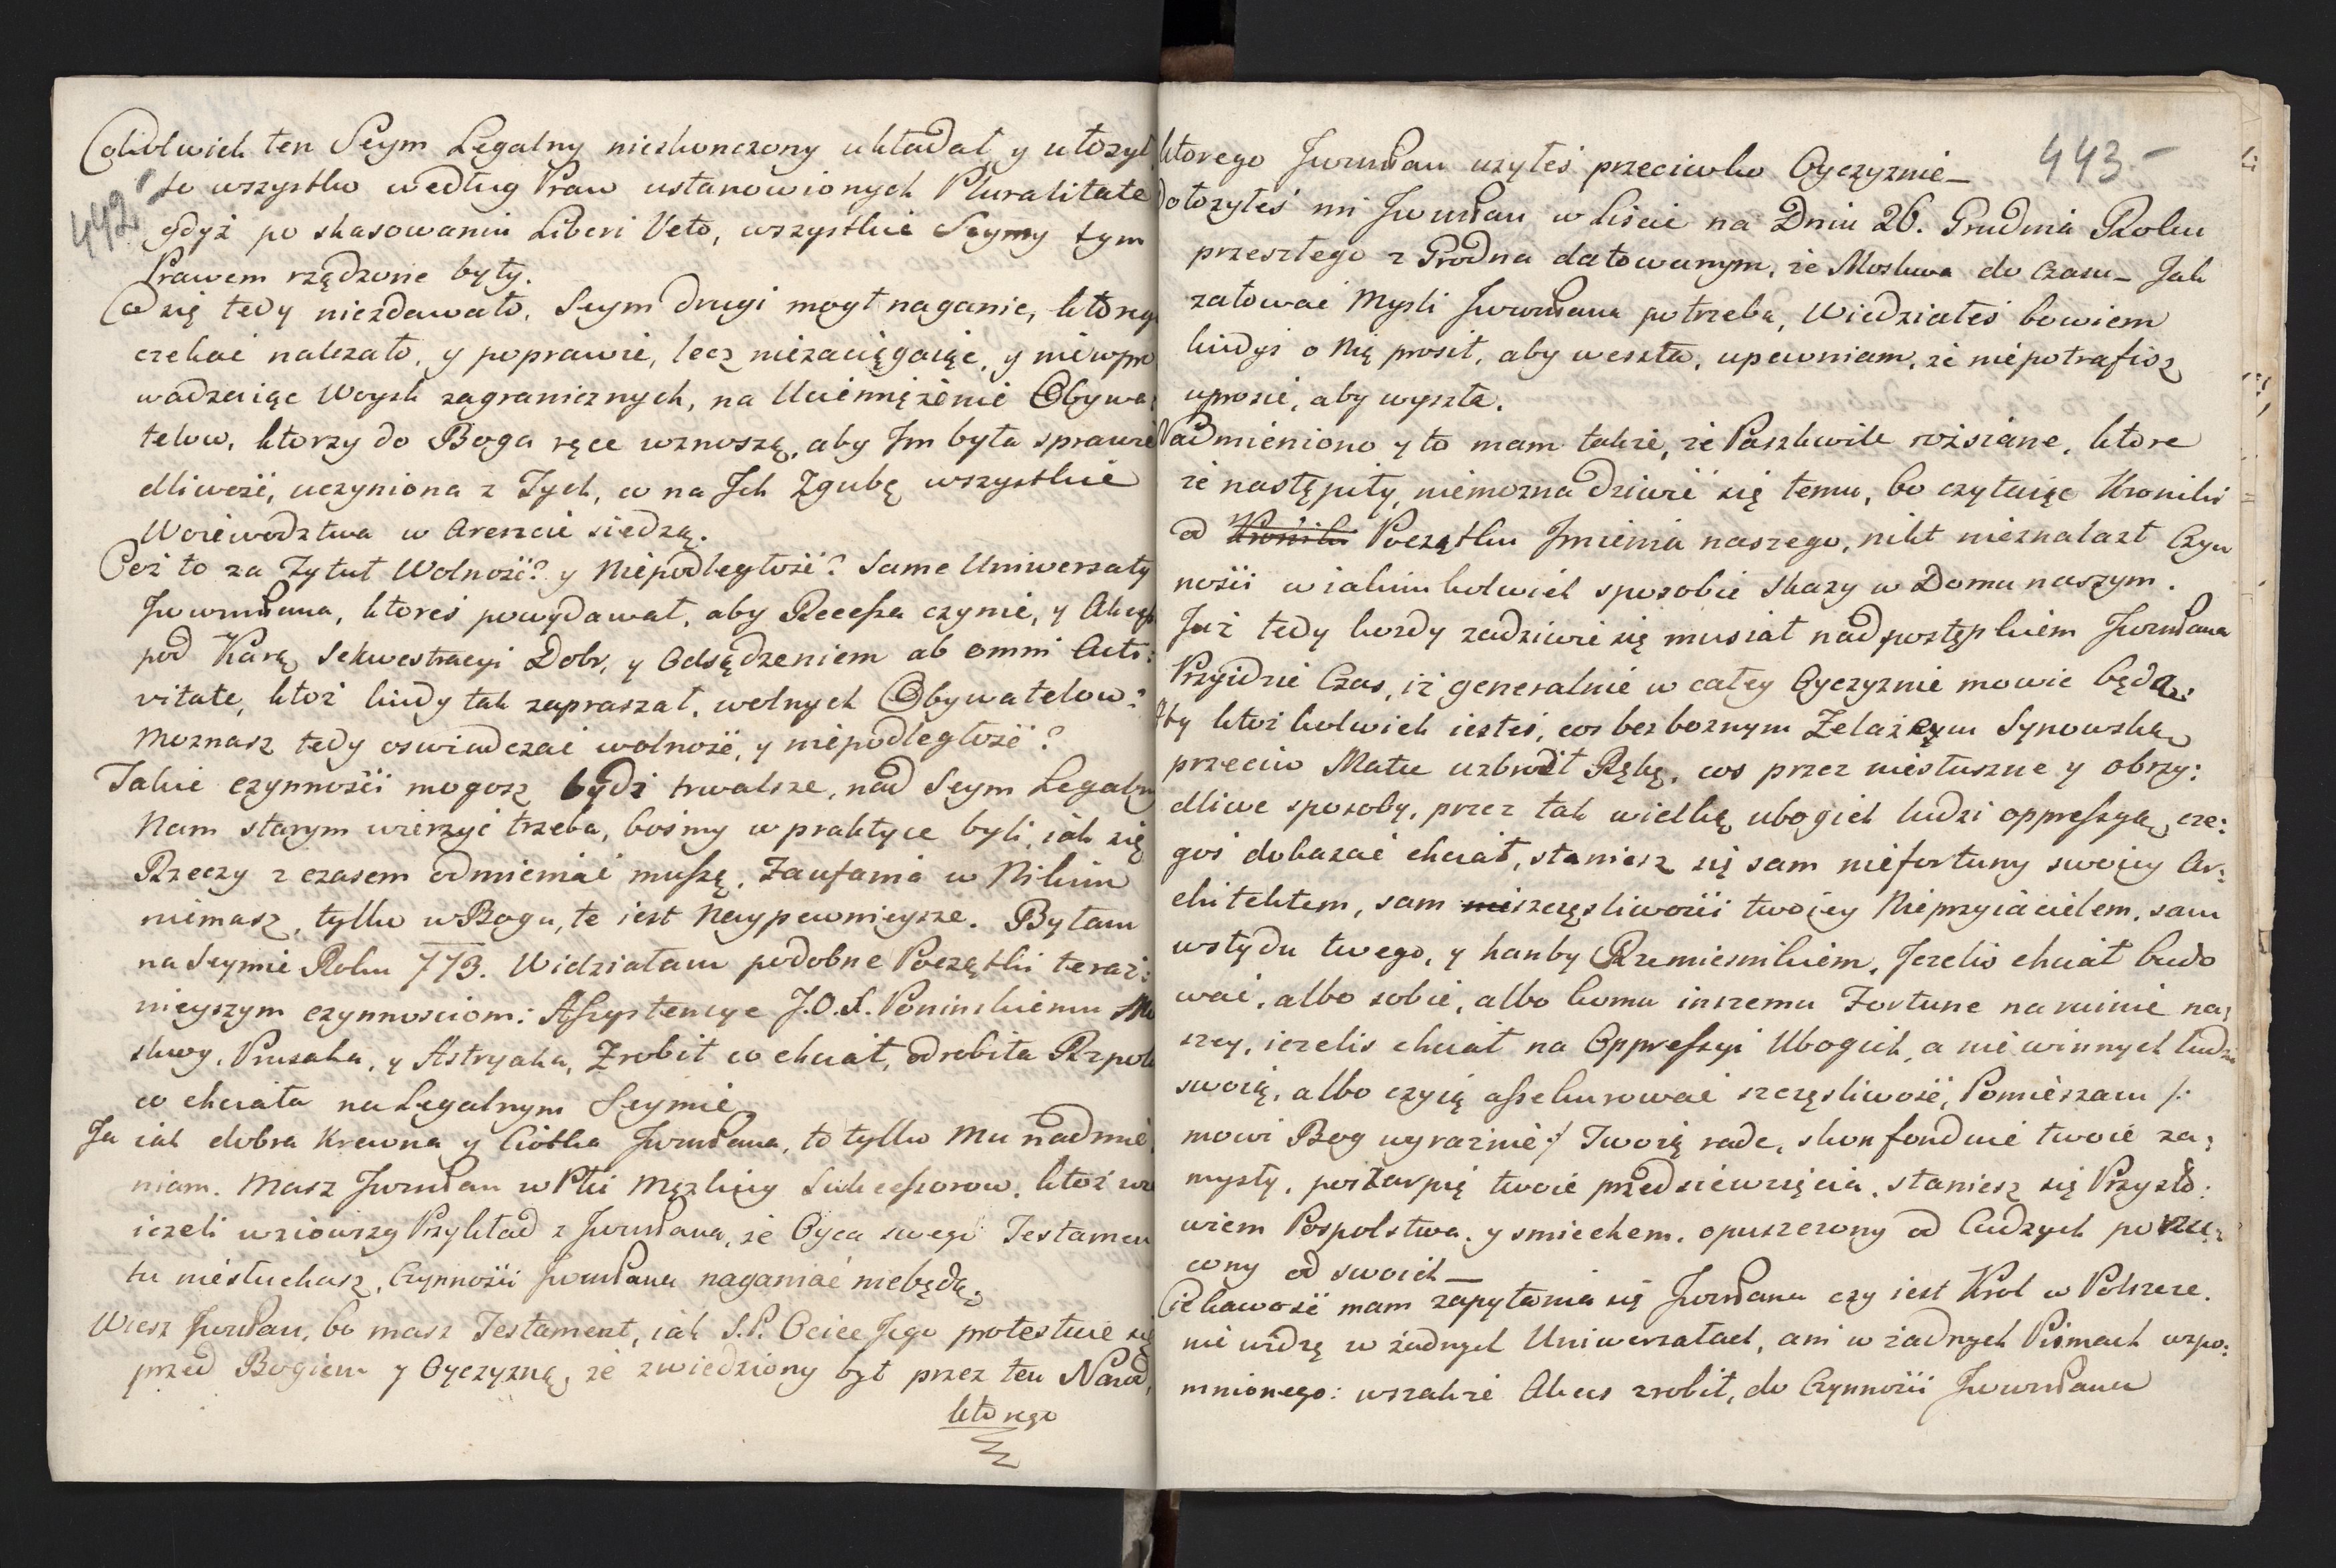 Cokolwiek ten Seym Legalny niezkonczony układał, y ułozył
442 to wszystko według Praw ustanowionych Pluralitate
gdyż po skasowaniu Liberi Veto, wszystkie Seymy tym
Prawem rządzone były.
Co się tedy niezdawało, Seym drugi mogł naganic, ktorego
czekać nalezało, y poprawić, lecz niezaciągaiąc, y niewpro
wadzaiąc Woysk zagranicznych, na Uciemiężenie Obywa:
telow, ktorzy do Boga ręce wznoszą, aby Im była sprawie
dliwość, uczyniona z Tych, co na Ich Zgubę wszystkie
Woiewodztwa w Areszcie siedzą.
Coż to za Tytuł Wolność? y Niepodległość? Same Uniwersały
Jwwmłana, ktoreś powydawał, aby Recessa czynić, y Akcess
pod Karą Sekwestracyi Dobr, y Odsądzeniem ab omni Acti:
vitate, ktoż kiedy tak zapraszał, wolnych Obywatelow?
Moznasz tedy oswiadczać wolność, y niepodległość?
Takie czynności mogosz bydź trwalsze, nad Seym Legalny
Nam starym wierzyć trzeba, bośmy w praktyce byli, iak się
Rzeczy z czasem odmieniać muszą. Zaufania w Nikim
niemasz, tylko w Bogu, te iest Naypewnieysze. Byłam
na Seymie Roku 773. Widziałam podobne Początki teraz:
nieyszym czynnosciom: Assystencye J.O.X. Poninskiemu Mo
skwy, Prusaka, y Astryaka, Zrobił co chciał, odrobiła Rzpolta
co chciała na Legalnym Seymie
Ja iak dobra Krewna y Ciotka Jwwmłana, to tylko Mu nadmie
niam. Masz Jwwmłan w Płci Męzkiey Sukcessorow, ktoż wie
iezeli wziowszy Przykład z Jwwmłana, że Oyca swego Testamen
tu niesłuchasz, Czynności Jwwmłana naganiać niebędą.
Wiesz Jwwmłan, bo masz Testament, iak S.P. Ociec Jego protestuie się
przed Bogiem y Oyczyzną, że zwiedziony był przez ten Narod,
ktorego
443
ktorego Jwwmłan uzyłeś przeciwko Oyczyznie
Dołozyłeś mi Jwwmłan w Liście na Dniu 26. Grudnia Roku
przeszłego z Grodna datowanym, że Moskwa do czasu. Jak
załować Mysli Jwwmłana potrzeba, Wiedziałeś bowiem
kiedyś o Nią prosił, aby weszła, upewniam, że niepotrafisz
uprosić, aby wyszła.
Nadmieniono y to mam także, że Paszkwile rożsiane, ktore
że nastąpiły, niemozna dziwić się temu, bo czytaiąc Kroniki
od Kroniki Początku Imienia naszego, nikt nieznalazł Czyn
ności w iakimkolwiek sposobie skazy w Domu naszym.
Już tedy kozdy zadziwić się musiał nad postępkiem Jwwmłana
Przyidzie Czas, iż generalnie w całey Oyczyznie mowić będą:
Ty ktoż kolwiek iesteś, coś bezboznym Zelazcym Synowską
przeciw Matce uzbroił Rękę, coś przez niesłuszne y obrzy:
dliwe sposoby, przez tak wielką ubogich ludzi oppressyą, cze:
goś dokazać chciał, staniesz się sam niefortuny swoiey Ar:
chitektem, sam nieszczęsliwości twoiey Nieprzyiacielem, sam
wstydu twego, y hanby Rzemiesnikiem, Jezeliś chciał budo
wać, albo sobie, albo komu inszemu Fortunę na ruinie na:
szey, iezeliś chciał na Oppressyi Ubogich, a niewinnych ludzi
swoią, albo czyią assekurować szczęsliwość, Pomieszam /:
mowi Bog wyraźnie:/ Twoię radę, skonfonduię twoie za:
mysły, poszarpię twoie przedsiewzięcia, staniesz się Przysło:
wiem Pospolstwa, y smiechem, opuszczony od Cudzych porzu:
cony od swoich
Ciekawość mam zapytania się Jwwmłana czy iest Krol w Polszcze.
nie widzę w żadnych Uniwersałach, ani w żadnych Pismach wspo:
mnionego: wszakże Akces zrobił, do Czynności Jwwmłana